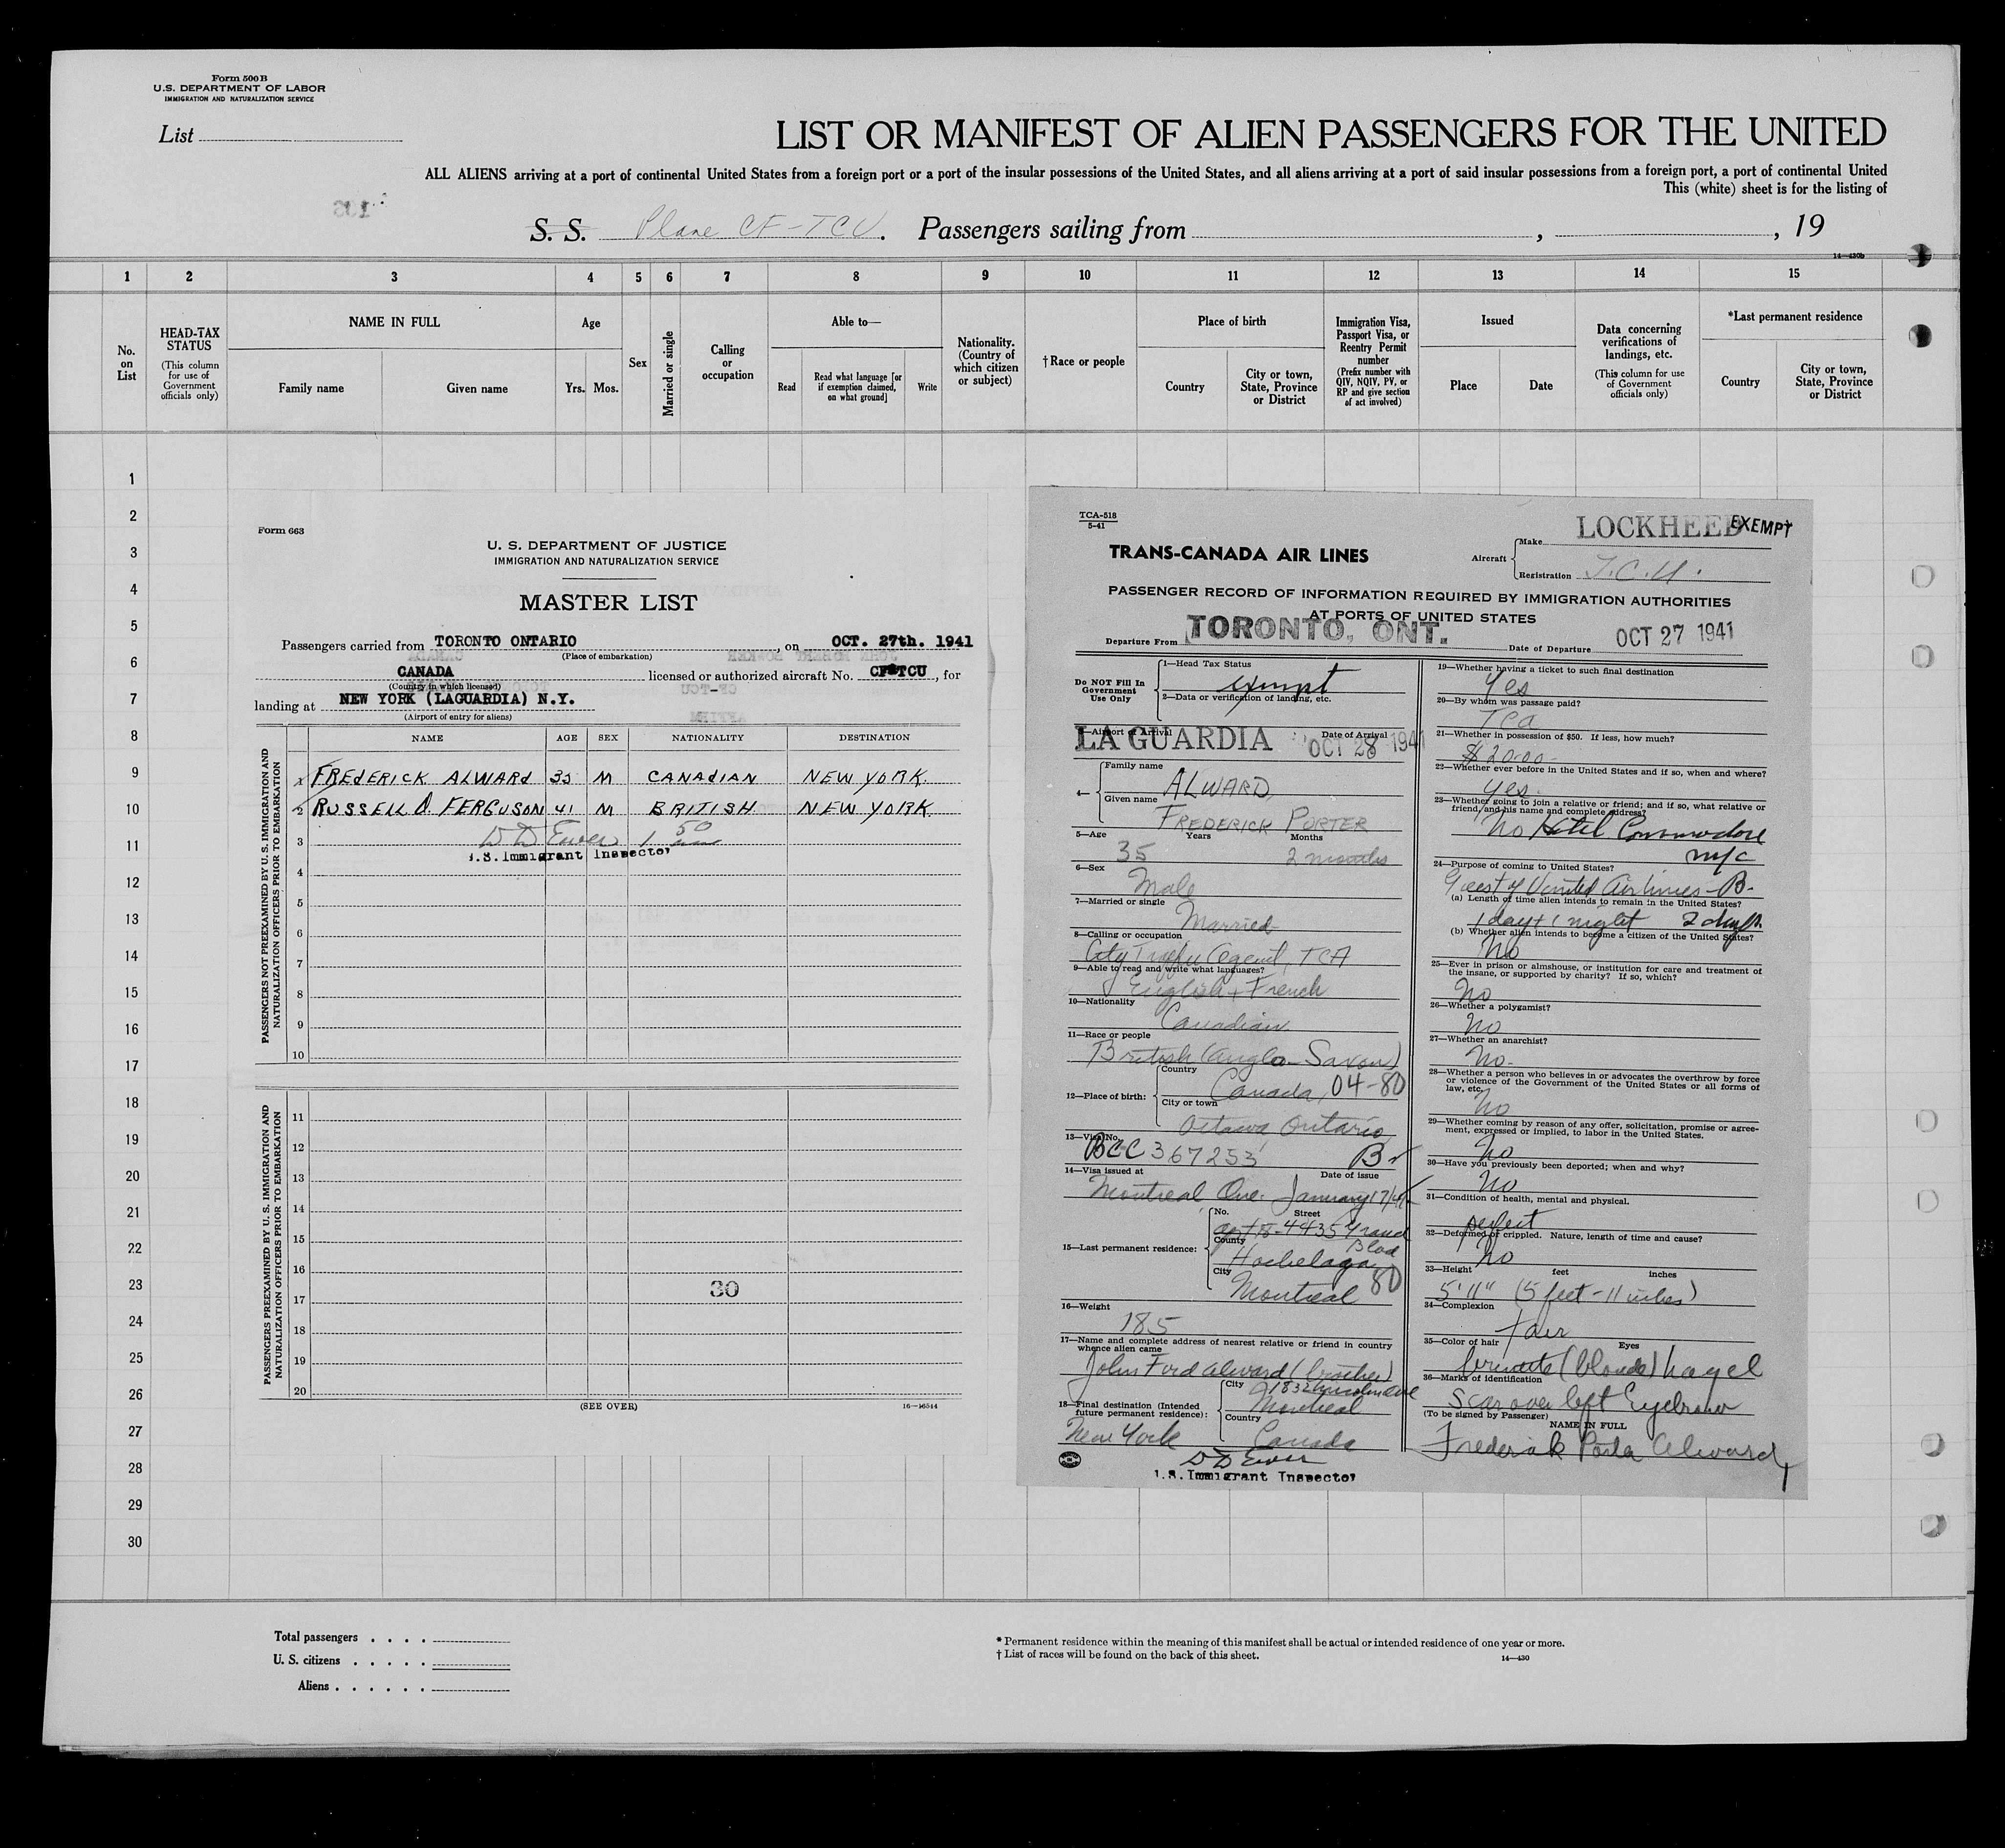 Form 500B
U.S. DEPARTMENT OF LABOR
IMMIGRATION AND NATURALIZATION SERVICE
List
LIST OR MANIFEST OF ALIEN PASSENGERS FOR THE UNITED
ALL ALIENS arriving at a port of continental United States from a foreign port or a port of the insular possessions of the United States, and all aliens arriving at a port of said insular possessions from a foreign port, a port of continental United
This (white) sheet is for the listing of
S. S. Plane CF-TCU. Passengers sailing from , , 19
14—430b
1 2 3 4 5 6 7 8 9 10 11 12 13 14 15
No. on List
HEAD-TAX STATUS
(This column for use of Government officials only)
NAME IN FULL
Family name
Given name
Age
Yrs. Mos.
Sex
Married or single
Calling or occupation
Able to—
Read
Read what language [or if exemption claimed, on what ground]
Write
Nationality. (Country of which citizen or subject)
†Race or people
Place of birth
Country
City or town, State, Province or District
Immigration Visa, Passport Visa, or Reentry Permit number
(Prefix number with QIV, NQIV, PV, or RP and give section of act involved)
Issued
Place
Date
Data concerning verifications of landings, etc.
(This column for use of Government officials only)
*Last permanent residence
Country
City or town, State, Province or District
1
2
3
4
5
6
7
8
9
10
11
12
13
14
15
16
17
18
19
20
21
22
23
24
25
26
27
28
29
30
Form 663
U. S. DEPARTMENT OF JUSTICE
IMMIGRATION AND NATURALIZATION SERVICE
MASTER LIST
Passengers carried from TORONTO ONTARIO, on OCT. 27th. 1941
(Place of embarkation)
CANADA licensed or authorized aircraft No. CF-TCU, for
(Country in which licensed)
landing at NEW YORK (LAGUARDIA) N.Y.
(Airport of entry for aliens)
NAME AGE SEX NATIONALITY DESTINATION
PASSENGERS NOT PREEXAMINED BY U. S. IMMIGRATION AND NATURALIZATION OFFICERS PRIOR TO EMBARKATION
1 FREDERICK ALWARD 35 M CANADIAN NEW YORK.
2 RUSSELL FERGUSON 41 M BRITISH NEW YORK.
3 D D Ewer
U.S. Immigrant Inspector
4
5
6
7
8
9
10
PASSENGERS PREEXAMINED BY U. S. IMMIGRATION AND NATURALIZATION OFFICERS PRIOR TO EMBARKATION
11
12
13
14
15
16
30
17
18
19
20
(SEE OVER)
16—16544
TCA-518
5-41
TRANS-CANADA AIR LINES
Aircraft
Make LOCKHEED EXEMPT
Registration T.C.U.
PASSENGER RECORD OF INFORMATION REQUIRED BY IMMIGRATION AUTHORITIES
AT PORTS OF UNITED STATES
Departure From TORONTO, ONT. Date of Departure OCT 27 1941
Do NOT Fill In Government Use Only
1—Head Tax Status
exempt
2—Data or verification of landing, etc.
3—Airport of Arrival Date of Arrival
LA GUARDIA OCT 28 1941
4— Family name
ALWARD,
Given name
FREDERICK PORTER
5—Age Years Months
35 2 months
6—Sex
Male
7—Married or single
Married
8—Calling or occupation
City Traffic Agent, TCA
9—Able to read and write what languages?
English + French
10—Nationality
Canadian
11—Race or people
British (Anglo-Saxon)
12—Place of birth: Country
Canada, 04-80
City or town
Ottawa Ontario
13—Visa No.
BCC 367253 B
14—Visa issued at Date of issue
Montreal Que. January 17/41
15—Last permanent residence: No. Street
apt 15-4435 Grand Blvd
County
Hochelaga
City
Montreal 80
16—Weight
185
17—Name and complete address of nearest relative or friend in country whence alien came
John Ford Alward (brother)
1832 Lincoln Ave
18—Final destination (Intended future permanent residence):
City
Montreal
Country
New York Canada
D D Ewer
U.S. Immigrant Inspector
19—Whether having a ticket to such final destination
Yes
20—By whom was passage paid?
TCA
21—Whether in possession of $50. If less, how much?
$20.00
22—Whether ever before in the United States and if so, when and where?
Yes.
23—Whether going to join a relative or friend; and if so, what relative or friend, and his name and complete address?
No Hotel Commodore
NYC
24—Purpose of coming to United States?
Guest of United Airlines-B-
(a) Length of time alien intends to remain in the United States?
1 day + 1 night 2 days
(b) Whether alien intends to become a citizen of the United States?
No
25—Ever in prison or almshouse, or institution for care and treatment of the insane, or supported by charity? If so, which?
No
26—Whether a polygamist?
No
27—Whether an anarchist?
No.
28—Whether a person who believes in or advocates the overthrow by force or violence of the Government of the United States or all forms of law, etc.
No
29—Whether coming by reason of any offer, solicitation, promise or agreement, expressed or implied, to labor in the United States.
No
30—Have you previously been deported; when and why?
No
31—Condition of health, mental and physical.
perfect
32—Deformed or crippled. Nature, length of time and cause?
No
33—Height feet inches
5'11" (5 feet-11 inches)
34—Complexion
Fair
35—Color of hair Eyes
(blonde) hazel
36—Marks of identification
Scar over left Eyebrow
(To be signed by Passenger)
NAME IN FULL
Frederick Porter Alward
Total passengers
U. S. citizens
Aliens
* Permanent residence within the meaning of this manifest shall be actual or intended residence of one year or more.
† List of races will be found on the back of this sheet.
14—430